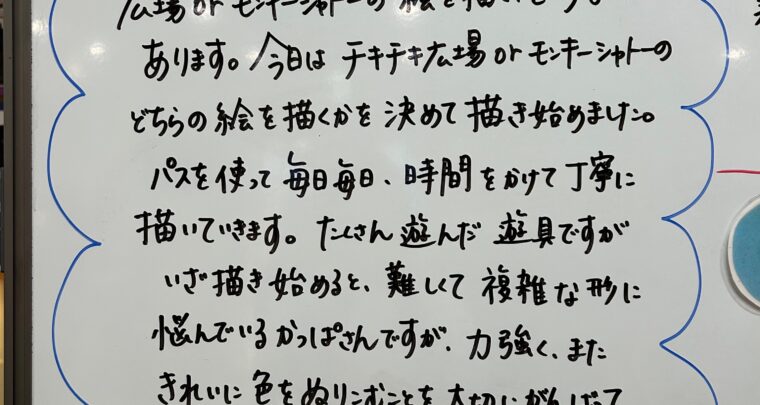 広場 or モンキーシャトーの 絵を描いています。
あります。今日は チキチキ広場 or モンキーシャトーの
どちらの絵を描くかを 決めて 描き始めました。
パスを使って 毎日毎日、時間をかけて 丁寧に
描いていきます。たくさん 遊んだ 遊具ですが
いざ描き始めると、難しくて 複雑な形に
悩んでいるかっぱさんですが、力強く、また
きれいに色をぬりこむことを大切にがんばって